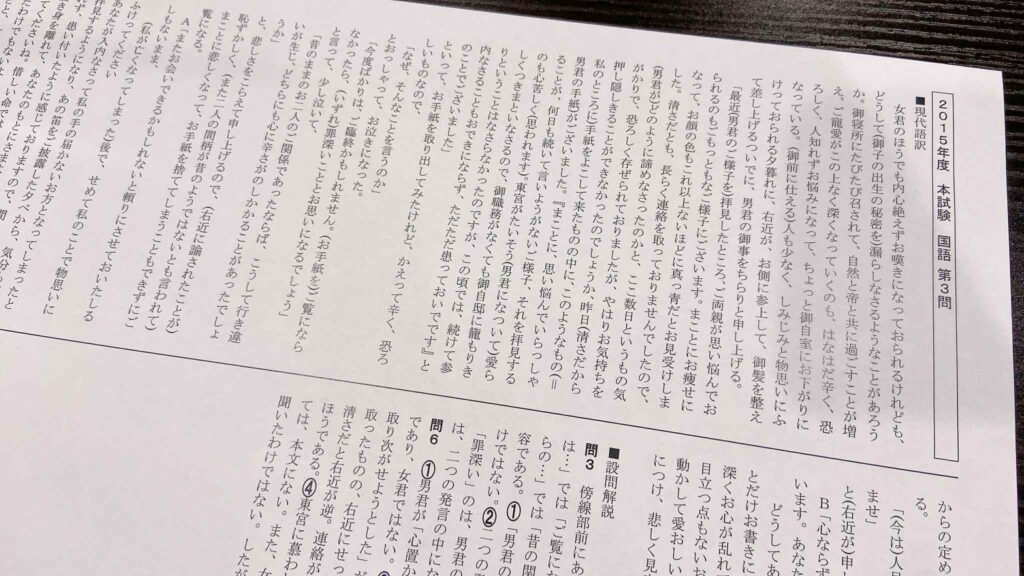 2015年度 本試験 国語 第3問
■現代語訳
女君のほうでも内心絶えずお嘆きになっておられるけれども、
どうして御子の出生の秘密を漏らしなさるようなことがあろう
か。御寝所にたびたび召されて、自然と帝と共に過ごすことが増
え、ご寵愛がこの上なく深くなっていくのも、はなはだ辛く、恐
ろしく、人知れずお悩みになって、ちょっと御自室にお下がりに
なっている。(御前に仕える)人も少なく、しみじみと物思いにふ
けっておられる夕暮れに、右近が、お側に参上して、御髪を整え
て差し上げるついでに、男君の御事をちらりと申し上げる。
「最近男君のご様子を拝見したところ、ご両親が思い悩んでお
られるのもごもっともなご様子にございます。まことにお痩せに
なって、お顔の色もこれ以上ないほどに真っ青だとお見受けしま
した。清さだとも、長らく連絡を取っておりませんでしたので、
(男君が)どのように諦めなさったのかと、ここ数日というもの気
がかりで、恐ろしく存ぜられておりましたが、やはりお気持ちを
押し隠しきることができなかったのでしょうか、昨日(清さだから
私のところに)手紙をよこして来たものの中に、このようなもの(=
男君の手紙)がございました。『まことに、思い悩んでいらっしゃ
ることが、何日も続いて言いようがないご様子、それを拝見する
のも心苦しく(思われます)東宮がたいそう(男君について)愛ら
しくつきまといなさるので、御職務がなくても御自邸に籠もりき
りということはなさらなかったのですが、この頃では、続けて参
内なさることもおできにならず、ただただ患っておいでです』と
のことでございました」
といって、お手紙を取り出してみたけれど、かえって辛く、恐ろ
しいものなので、
「なぜ、そんなことを言うのか」
とおっしゃって、お泣きになった。
「今度ばかりは、ご臨終かもしれません。(お手紙を)ご覧になら
なかったら、(いずれ)罪深いことだとお思いになるでしょう」
と言って、少し泣いて、
「昔のままのお二人のご関係であったならば、こうして行き違
いが生じ、どちらにも心に辛さがのしかかることがあったでしょ
うか」
と、悲しさをこらえて申し上げるので、(右近に諭されたことが)
恥ずかしく、(また二人の間柄が昔のようではないとも言われて)
まことに悲しくなって、お手紙を捨ててしまうこともできずにご
覧になる。
A「またお会いできるかもしれないと頼りにさせておいたしる
しもないまま、
(私が亡くなってしまった後で、せめて私のことで物思いに
ふけってください
からの定め
る。
「(今は)人
ませ」
と(右近が)申し
B「心ならず
います。あなた
どうしてあ
とだけお書きに
深くお心が乱れ
目立つ点もないお
動かして愛おしい
につけ、悲しく見
■設問解説
問3 傍線部前にあ
は…」では「ご覧にな
らの…」では「昔の関
容である。①「男君の
けではない。②二つの
「罪深い」のは、男君の
は、二つの発言の中にな
問6 ①男君が「心置か
であり、女君ではない。
取り次がせようとした」が
取ったものの、右近にせっ
清さだと右近が逆。連絡が
ほうである。④東宮に慕わ
ては、本文にない。また、女
聞いたわけではない。したが